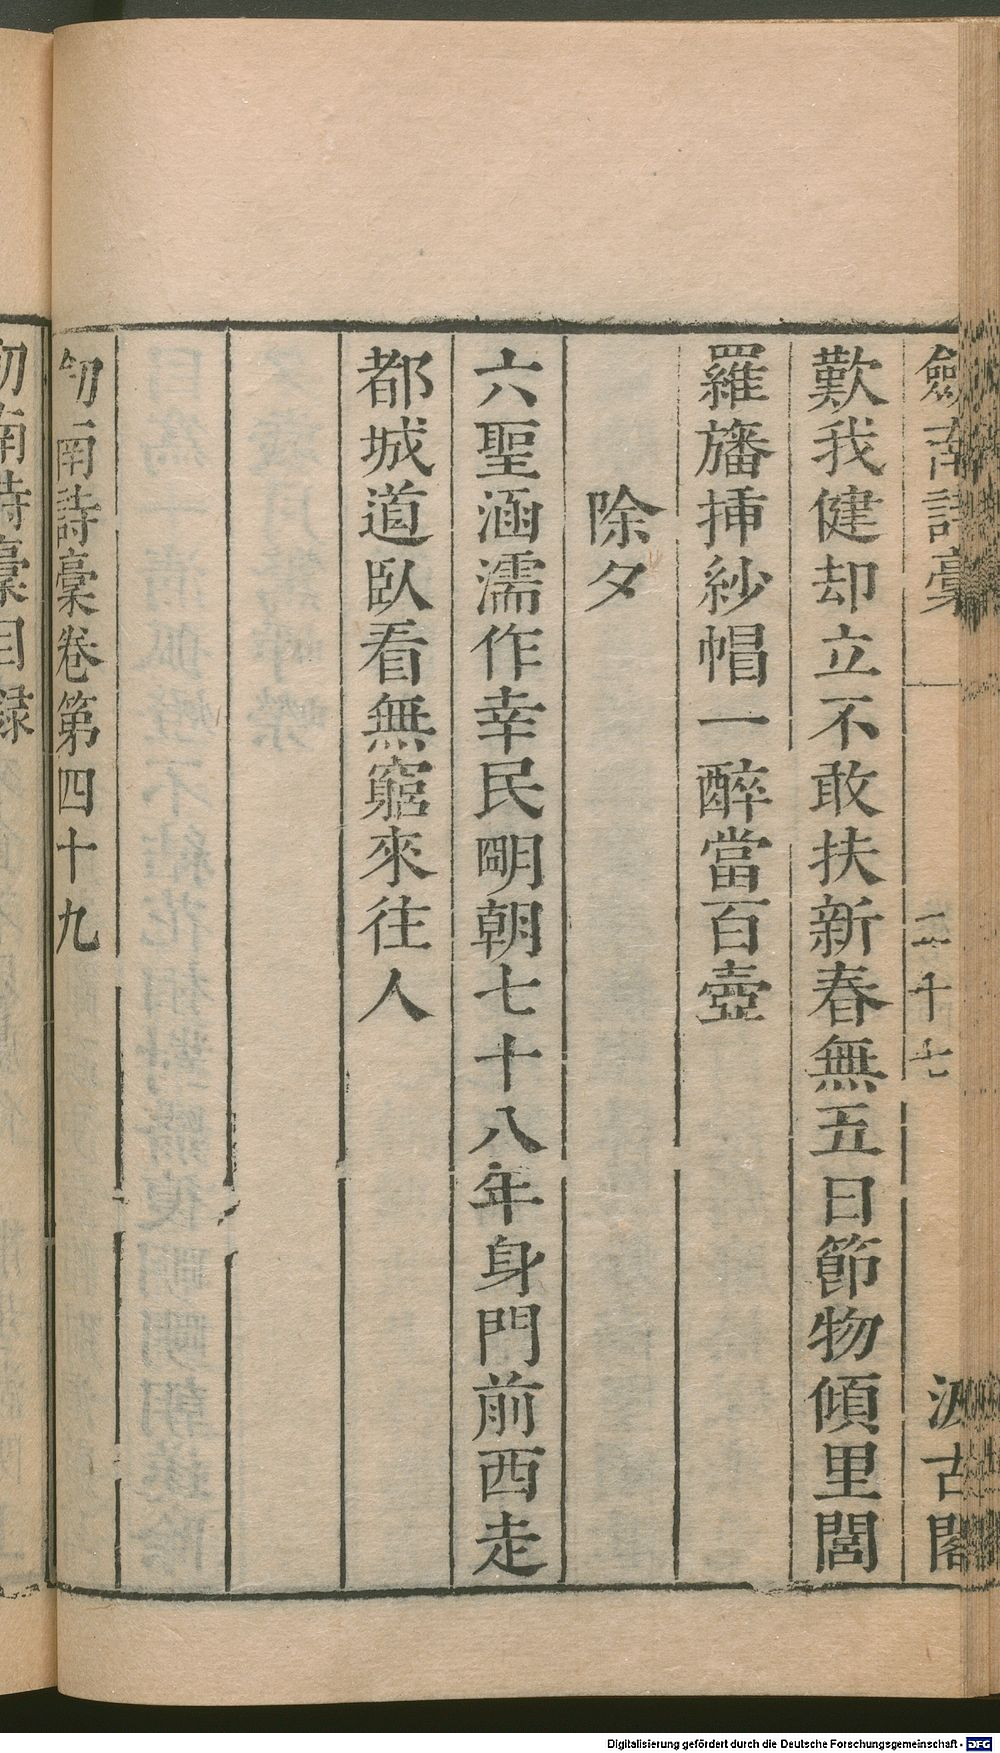 劒南詩稾
二十七
汲古閣
歎我健却立不敢扶新春無五日節物傾里閭
羅旛揷紗帽一醉當百壺
除夕
六聖涵濡作幸民朙朝七十八年身門前西走
都城道臥看無窮來往人
劒南詩稾卷第四十九
南詩稾目録
Digitalisierung gefördert durch die Deutsche Forschungsgemeinschaft -
DFG